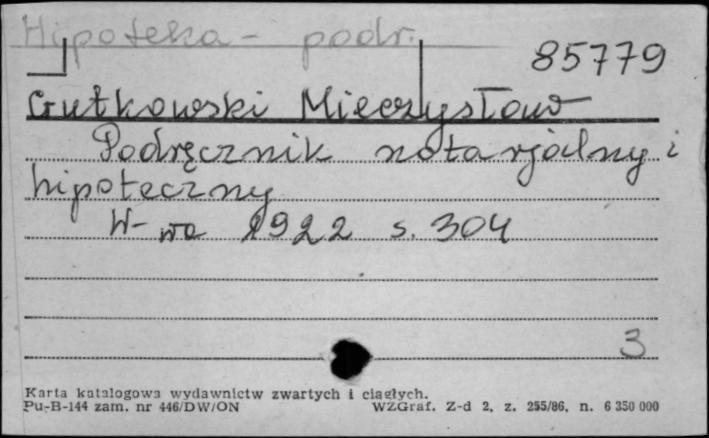 Hipoteka - podr.
85779
Gutkowski Mieczysław
Podręcznik notarjalny i
hipoteczny
W-wa 1922 s. 304
3
Karta katalogowa wydawnictw zwartych i ciągłych.
Pu-B-144 zam. nr 446/DW/ON
WZGraf. Z-d 2, z. 255/86, n. 6 350 000